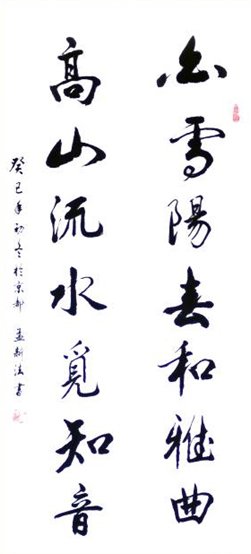 白雪陽春和雅曲
高山流水覓知音
癸巳年初冬於京都 孟新法書